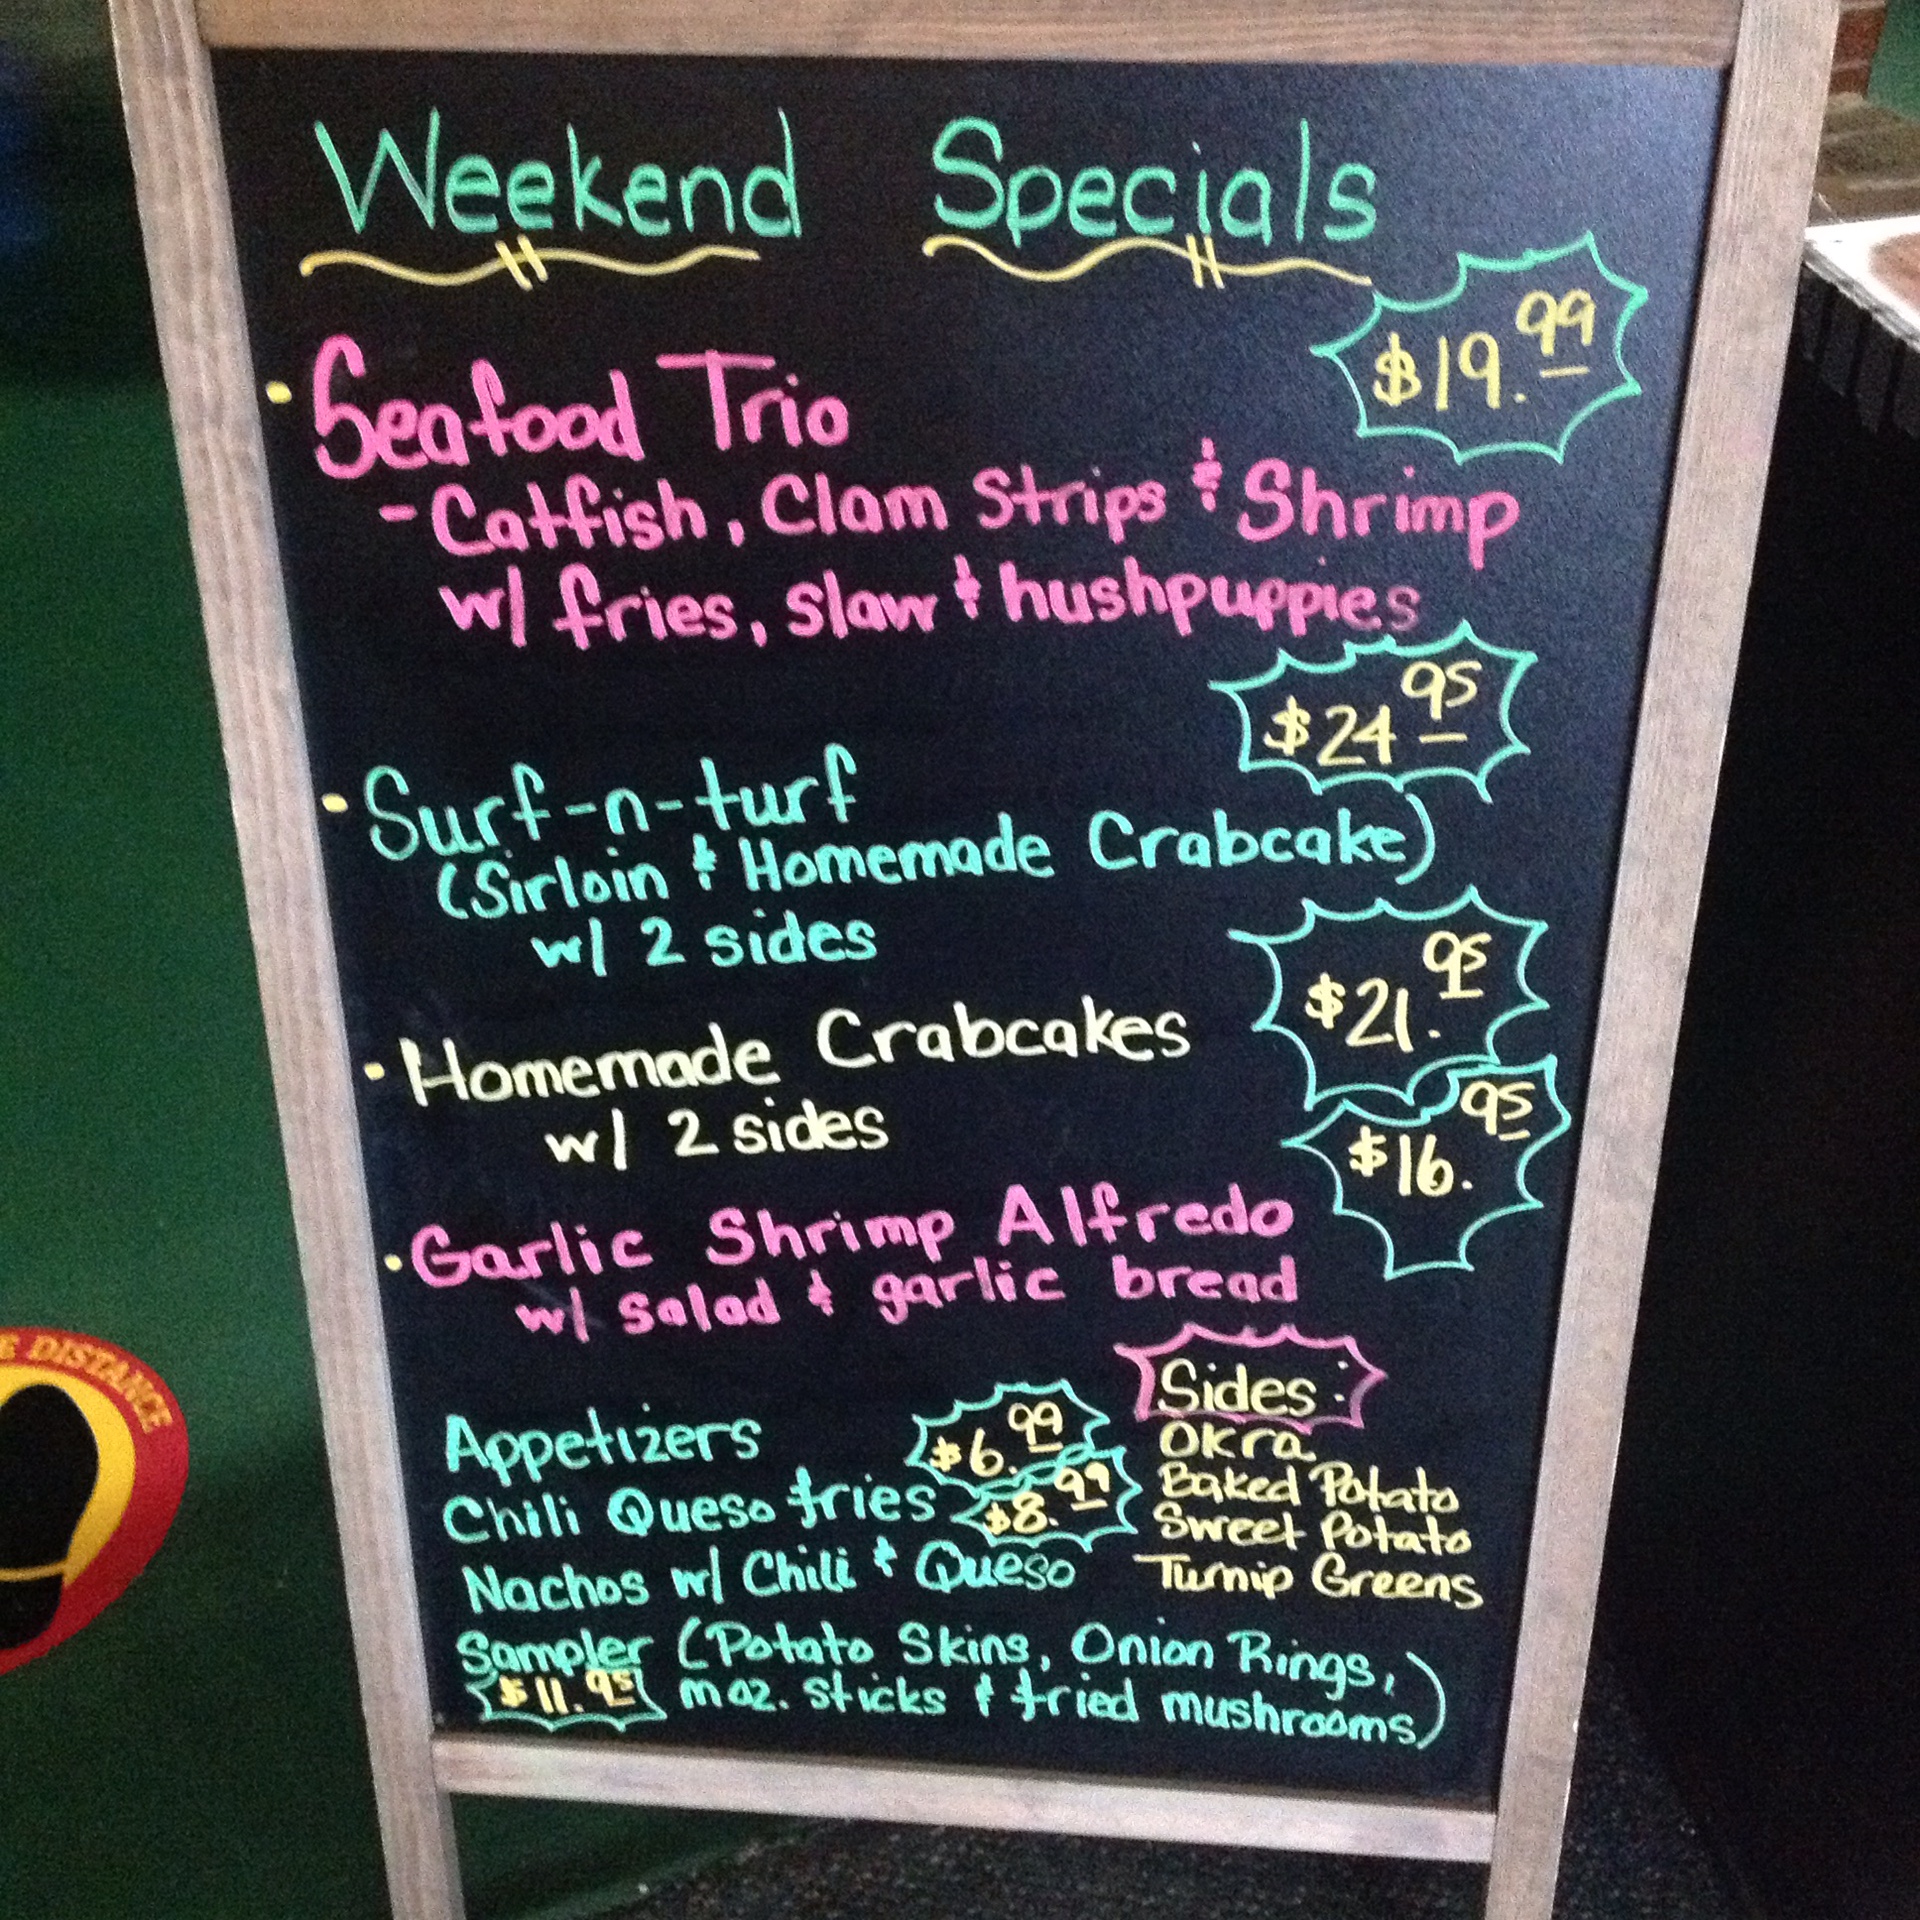 Weekend Specials
$19.99
• Seafood Trio
- Catfish, Clam Strips & Shrimp
w/ fries, slaw & hushpuppies
$24 95
• Surf-n-turf
(Sirloin & Homemade Crabcake)
w/ 2 sides
$21.95
• Homemade Crabcakes
w/ 2 sides
$16.95
• Garlic Shrimp Alfredo
w/ salad & garlic bread
Appetizers
$6.99
Chili Queso fries
$8.99
Nachos w/ Chili & Queso
Sides:
Okra
Baked Potato
Sweet Potato
Turnip Greens
Sampler (Potato Skins, Onion Rings,
$11.95 moz. sticks & fried mushrooms)
DISTANCE